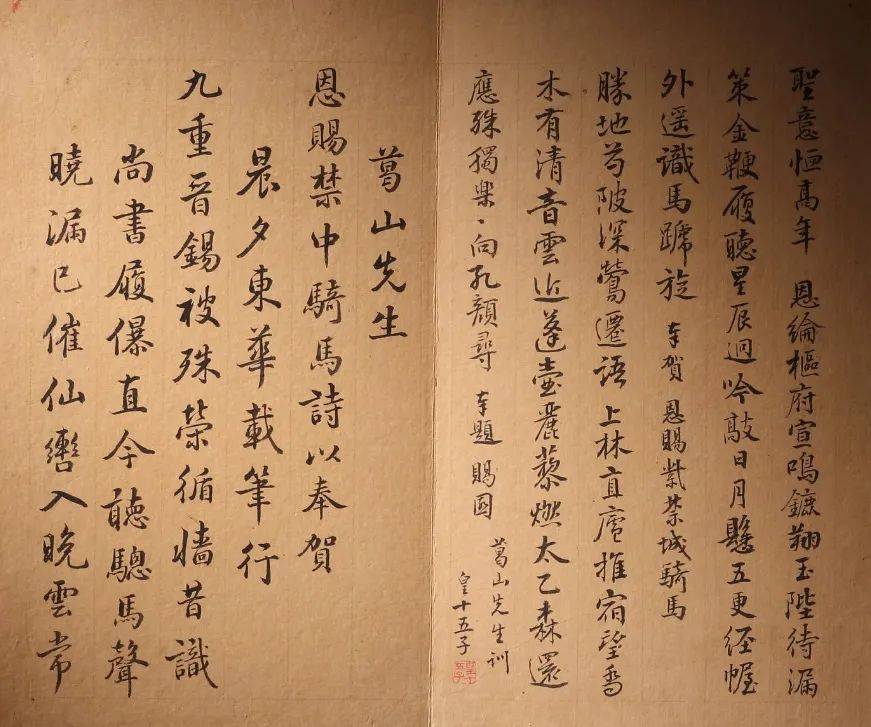 聖意恒高年 恩綸樞府宣鳴鑣翔玉陛待漏
策金鞭履聽星辰迥吟敲日月懸五更經幄
外遥識馬蹏旋 奉賀 恩賜紫禁城騎馬
勝地芳陂深鶯遷語上林直廬推宿望喬
木有清音雲近蓬壺麗藜燃太乙森還
應殊獨樂、向孔顔尋 奉題 賜園
葛山先生訓
皇十五子
葛山先生
恩賜禁中騎馬詩以奉賀
晨夕東華載筆行
九重晉錫被殊榮循墻昔識
尚書履儤直今聽驄馬聲
曉漏已催仙轡入晚雲常